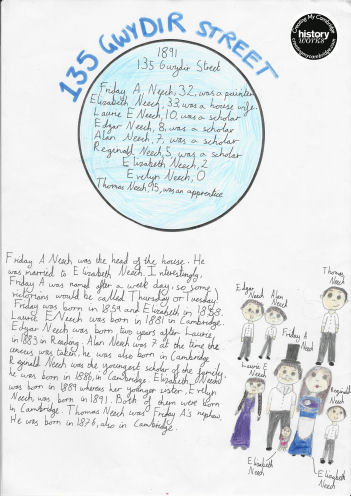 135 GWYDIR STREET
Creating My Cambridge
history
works
creatingmycambridge.com
1891
135 Gwydir Street
Friday A, Neech, 32, was a painter
Elizabeth Neech, 33 was a house wife.
Laurie E Neech, 10, was a scholar
Edgar Neech, 8, was a scholar
Alan Neech, 7, was a scholar
Reginald Neech, 5, was a scholar
Elizabeth Neech, 2
Evelyn Neech, 0
Thomas Neech, 15, was an apprentice
Friday A Neech was the head of the house. He
was married to Elizabeth Neech. Interestingly,
Friday A was named after a week day, so some
victorians would be called Thursday or Tuesday!
Friday was born in 1859 and Elizabeth in 1858.
Laurie E Neech was born in 1881 in Cambridge.
Edgar Neech was born two years after Laurie,
in 1883 in Reading. Alan Neech was 7 at the time the
census was taken, he was also born in Cambridge
Reginald Neech was the youngest scholar of the family,
he was born in 1886, in Cambridge. Elizabeth Neech
was born in 1889 whereas her younger sister, Evelyn
Neech, was born in 1891. Both of them were born
in Cambridge. Thomas Neech was Friday A's nephew.
He was born in 1876, also in Cambridge.
Thomas
Neech
Edgar
Neech
Alan
Neech
Friday A
Neech
Laurie E
Neech
Reginald
Neech
Elizabeth
Neech
Elizabeth
Neech